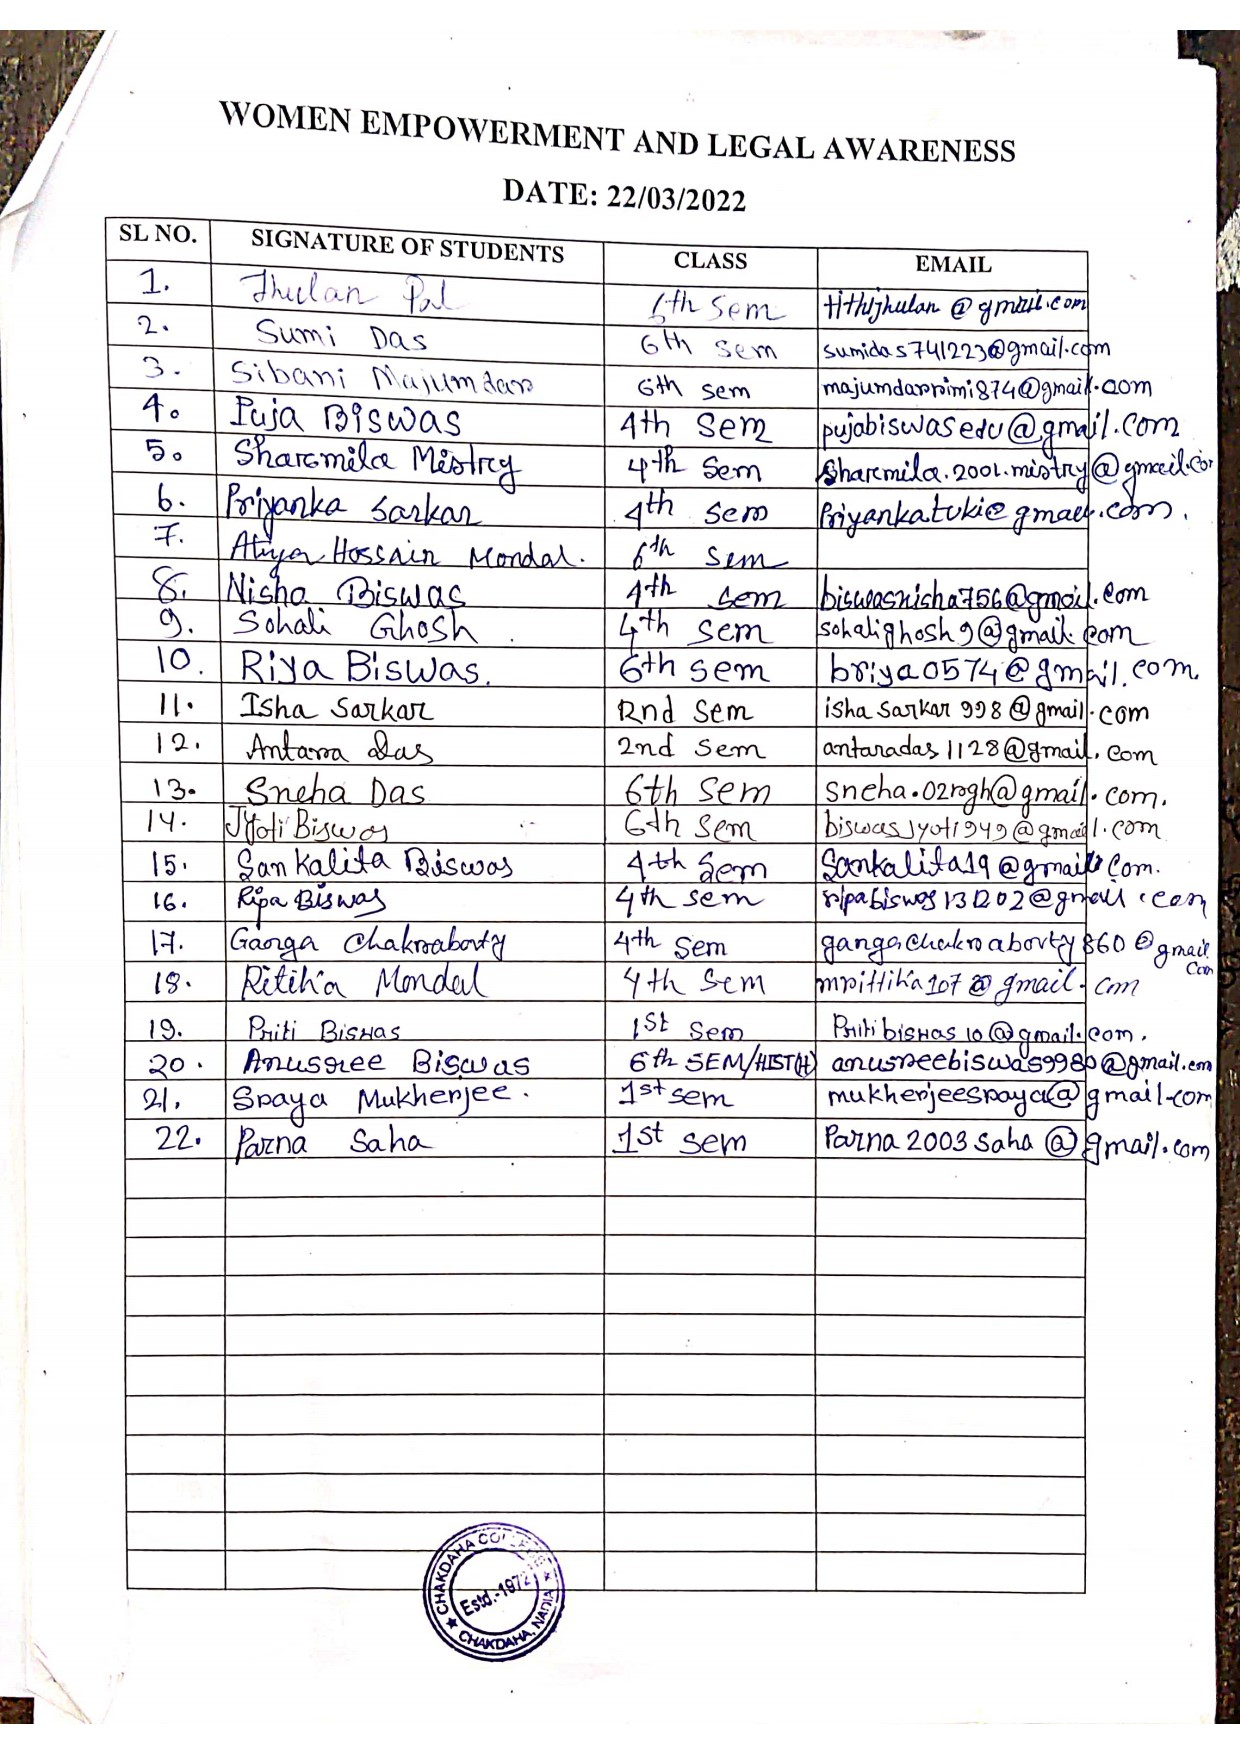 WOMEN EMPOWERMENT AND LEGAL AWARENESS
DATE: 22/03/2022
SL NO. SIGNATURE OF STUDENTS CLASS EMAIL
1. Jhulan Pal 6th Sem tithijhulan@gmail.com
2. Sumi Das 6th sem sumidas741223@gmail.com
3. Sibani Majumdar 6th sem majumdarrimi874@gmail.com
4. Puja Biswas 4th Sem pujabiswasedu@gmail.com
5. Sharmila Mistry 4th Sem Sharmila.2001.mistry@gmail.com
6. Priyanka Sarkar 4th Sem Priyankatuki@gmail.com.
7. Atiya Hossain Mondal. 6th Sem
8. Nisha Biswas 4th sem biswasnisha756@gmail.com
9. Sohali Ghosh 4th sem sohalighosh9@gmail.com
10. Riya Biswas. 6th sem briya0574@gmail.com.
11. Isha Sarkar 2nd Sem isha sarkar 998@gmail.com
12. Antara Das 2nd Sem antaradas1128@gmail.com
13. Sneha Das 6th Sem
14. Jyoti Biswas 6th Sem biswasjyoti949@gmail.com
15. Sankalita Biswas 4th Sem Sankalita19@gmail.com.
16. Ripa Biswas 4th sem ripabiswas131202@gmail.com
17. Ganga Chakraborty 4th Sem gangachakraborty860@gmail.com
18. Ritika Mondal 4th Sem mrittika107@gmail.com
19. Priti Biswas 1st Sem Pritibiswas10@gmail.com.
20. Anusree Biswas 6th SEM/HIST(H) anusreebiswas9980@gmail.com
21. Sraya Mukherjee. 1st sem mukherjeesraya@gmail.com
22. Parna Saha 1st Sem Parna2003saha@gmail.com
CHAKDAHA COLLEGE
Estd.-1972
CHAKDAHA, NADIA